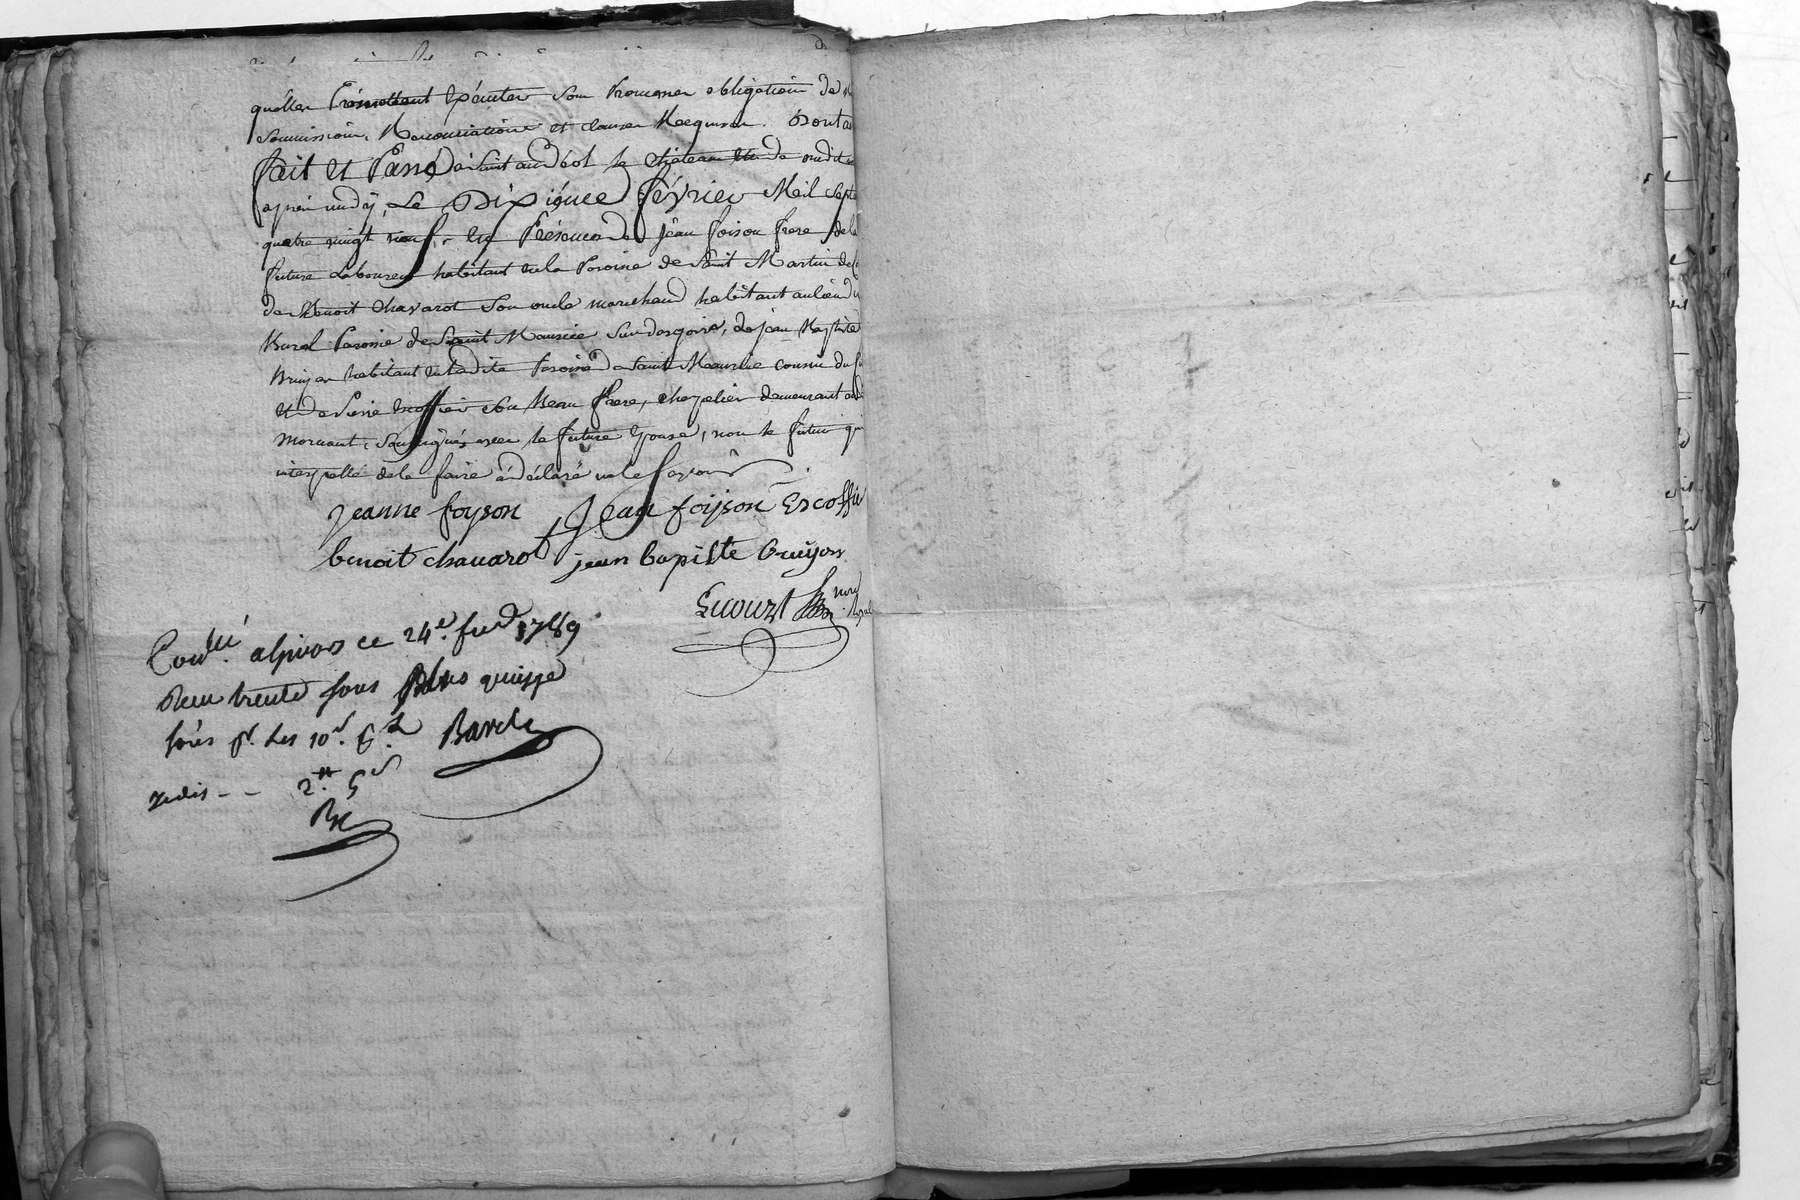 quelles Promettent Exécuter Sous Promesses obligation de
Soumissions, Renonciations et clauses Requises. Dont acte
fait et Passé à Saint andéol le chateau Etude susdite
après midy, Le Dixiéme février Mil Sept
quatre vingt neuf, En Présence de jean foison frere de la
future Laboureur habitant en la Paroisse de Saint Martin de
de Benoit Chavarot Son oncle marchand habitant au lieu du
Burel Paroisse de Saint Maurice Sur dargoire, de jean Baptiste
Bruyas habitant en ladite Paroisse de Saint Maurice cousin du
et de Pierre Escoffier Son Beau frere, chapelier demeurant
mornant, Soussignés avec la future Epouse, non le futur
interpellé de le faire a déclaré ne le Savoir
jeanne foyson Jean foijson Escoffie
benoit chavarot jean baptiste
Contlé a Givors ce 24e. fev 1789
Reçu trente sous Plus quinze
sous pr. les 10s. pr. L
2.tt 5s